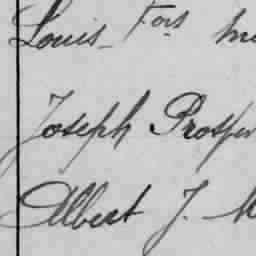 Louis Fois
Joseph Prosper
Albert J. M